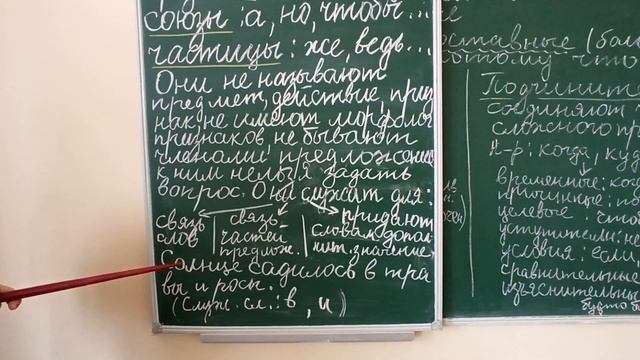 союзы: а, но, чтобы...
частицы: же, ведь...
Они не называют
предмет, действие, приз
нак, не имеют морфолог
признаков, не бывают
членами предложение
к ним нельзя задать
вопрос. Они служат для:
связь слов
связь частей предлож.
придают словам дополнит. значение
Солнце садилось в тра
вы и росы.
(Служ. сл.: в, и)
ставные (боль
потому что
Подчинит
соединяют
сложного пр
н-р: когда, куд
временные: ког
причинные: по
целевые: что
уступительн: н
условия: если,
сравнительные
изъяснительны
будто б